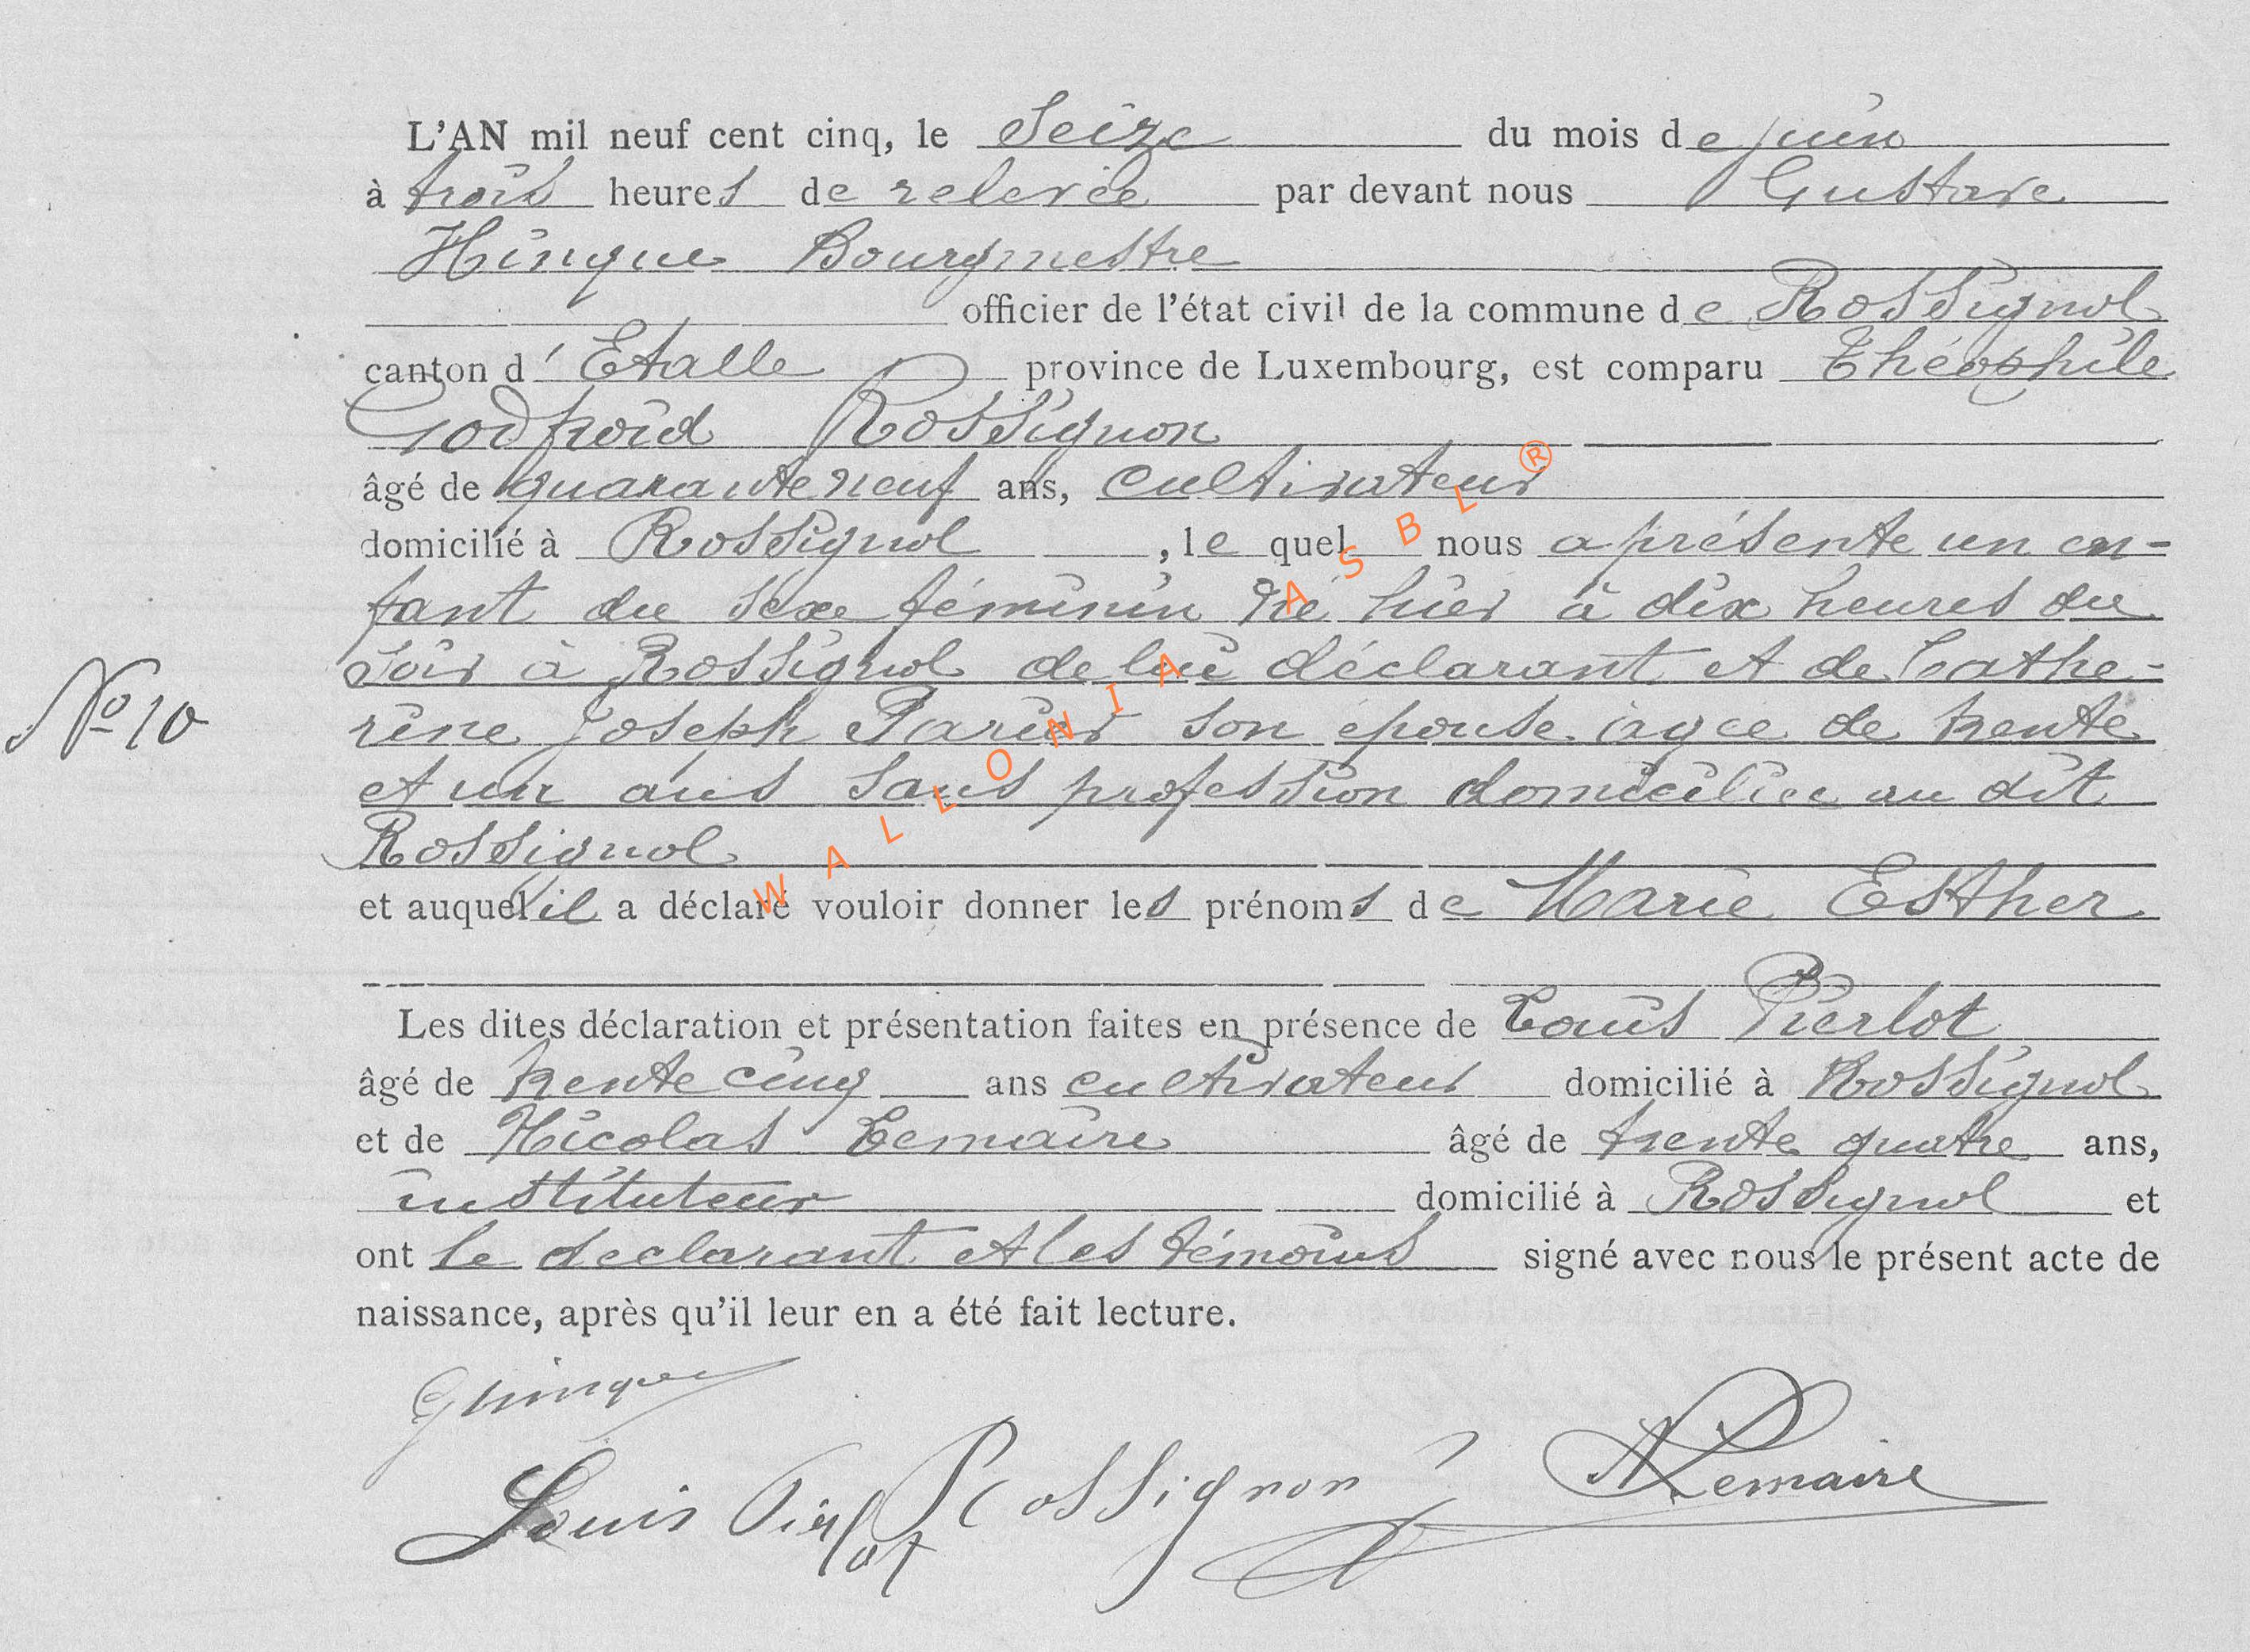 L'AN mil neuf cent cinq, le Seize du mois de juin
à trois heures de relevée par devant nous Gustave
Hinque Bourgmestre
officier de l'état civil de la commune de Rossignol
canton d'Etalle province de Luxembourg, est comparu Théophile
Godfroid Rossignon
âgé de quarante neuf ans, cultivateur
domicilié à Rossignol, le quel nous a présenté un en-
fant du sexe féminin né hier à dix heures du
soir à Rossignol de lui déclarant et de Cathe-
N° 10
rine Joseph son épouse agée de trente
et un ans sans profession domiciliée au dit
Rossignol
et auquel il a déclaré vouloir donner les prénoms de Marie Esther
Les dites déclaration et présentation faites en présence de Louis Pierlot
âgé de trente cinq ans cultivateur domicilié à Rossignol
et de Nicolas Lemaire âgé de trente quatre ans,
instituteur domicilié à Rossignol et
ont le declarant et les témoins signé avec nous le présent acte de
naissance, après qu'il leur en a été fait lecture.
GHinque
Louis Pierlot Rossignon NLemaire
WALLONIA ASBL ®